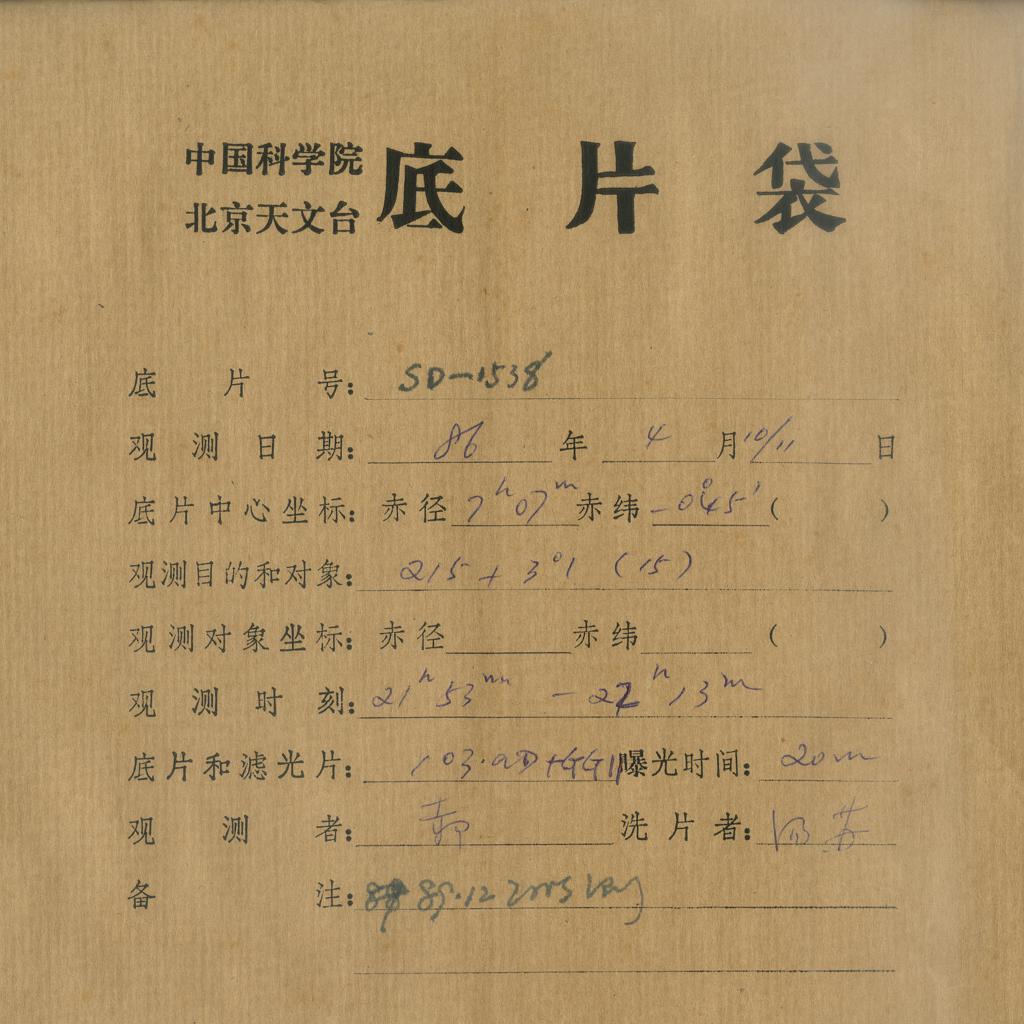 中国科学院
北京天文台
底片袋
底片号: SD-1538
观测日期: 86 年 4 月 10/11 日
底片中心坐标: 赤径 7h 07m 赤纬 -0°45' ( )
观测目的和对象: 215 + 3°1 (15)
观测对象坐标: 赤径 赤纬 ( )
观测时刻: 21h 53m - 22h 13m
底片和滤光片: 103aD+GG11 曝光时间: 20m
观测者: 洗片者: 苏
备注: 89.12